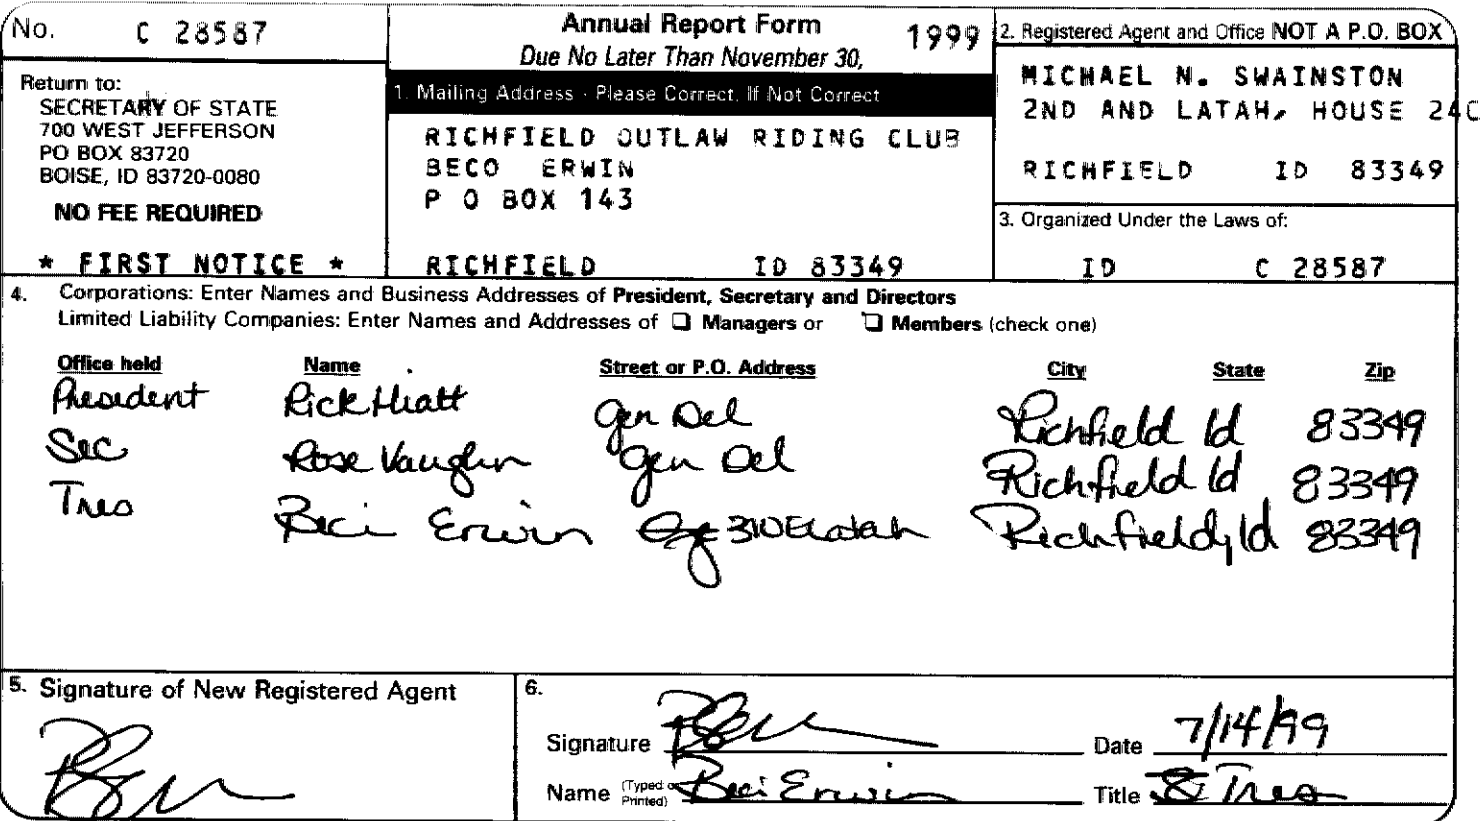 No. C 28587
Return to:
SECRETARY OF STATE
700 WEST JEFFERSON
PO BOX 83720
BOISE, ID 83720-0080
NO FEE REQUIRED
* FIRST NOTICE *
Annual Report Form 1999
Due No Later Than November 30,
1. Mailing Address - Please Correct, If Not Correct
RICHFIELD OUTLAW RIDING CLUB
BECO ERWIN
P O BOX 143
RICHFIELD ID 83349
2. Registered Agent and Office NOT A P.O. BOX
MICHAEL N. SWAINSTON
2ND AND LATAH, HOUSE 24C
RICHFIELD ID 83349
3. Organized Under the Laws of:
ID C 28587
4. Corporations: Enter Names and Business Addresses of President, Secretary and Directors
Limited Liability Companies: Enter Names and Addresses of ❑ Managers or ❑ Members (check one)
Office held Name Street or P.O. Address City State Zip
President Rick Hiatt Gen Del Richfield Id 83349
Sec Rose Vaughn Gen Del Richfield Id 83349
Tres Beci Erwin 310 E Latah Richfield, Id 83349
5. Signature of New Registered Agent
6.
Signature Date 7/14/99
Name (Typed or Printed) Beci Erwin Title Tres